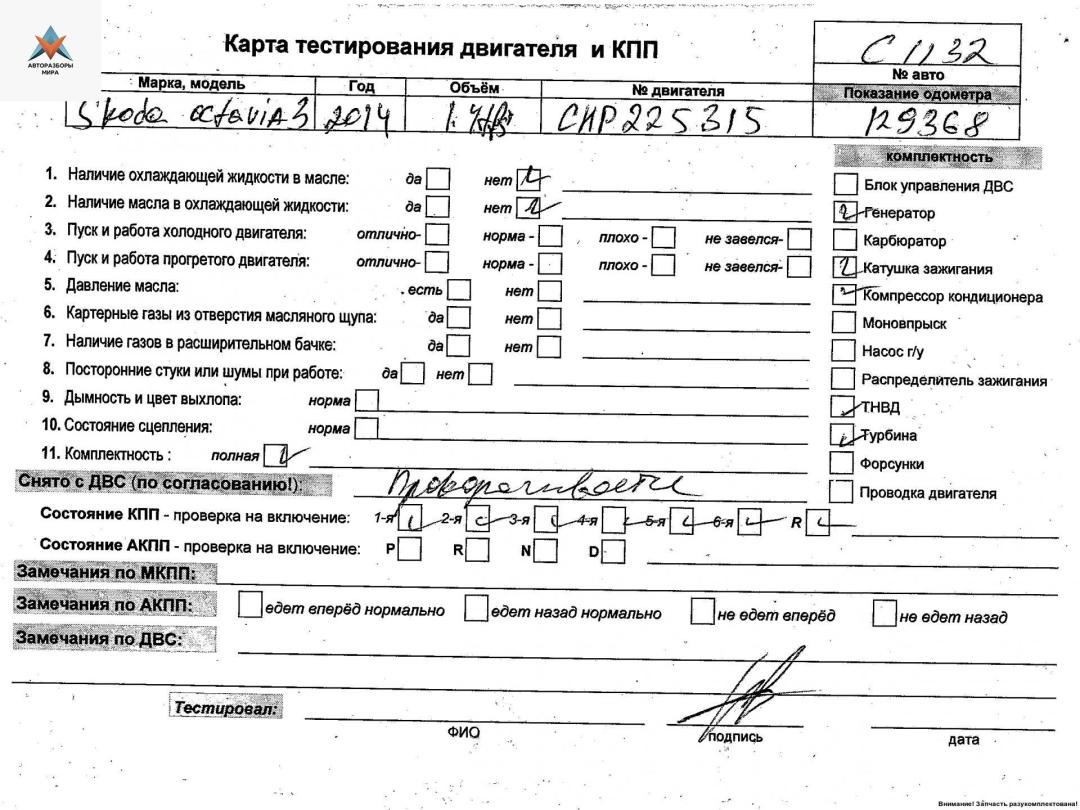 АВТОРАЗБОРЫ
МИРА
Карта тестирования двигателя и КПП
С 1132
№ авто
Марка, модель Год Объём № двигателя Показание одометра
Skoda octaviA 3 2014 1.4 CHP225315 129368
комплектность
1. Наличие охлаждающей жидкости в масле: да нет
2. Наличие масла в охлаждающей жидкости: да нет
3. Пуск и работа холодного двигателя: отлично- норма - плохо - не завелся-
4. Пуск и работа прогретого двигателя: отлично- норма - плохо - не завелся-
5. Давление масла: есть нет
6. Картерные газы из отверстия масляного щупа: да нет
7. Наличие газов в расширительном бачке: да нет
8. Посторонние стуки или шумы при работе: да нет
9. Дымность и цвет выхлопа: норма
10. Состояние сцепления: норма
11. Комплектность : полная
Блок управления ДВС
Генератор
Карбюратор
Катушка зажигания
Компрессор кондиционера
Моновпрыск
Насос г/у
Распределитель зажигания
ТНВД
Турбина
Форсунки
Проводка двигателя
Снято с ДВС (по согласованию!):
Состояние КПП - проверка на включение: 1-я 2-я 3-я 4-я 5-я 6-я R
Состояние АКПП - проверка на включение: P R N D
Замечания по МКПП:
Замечания по АКПП: едет вперёд нормально едет назад нормально не едет вперёд не едет назад
Замечания по ДВС:
Тестировал:
ФИО подпись дата
Внимание! Запчасть разукомплектована!